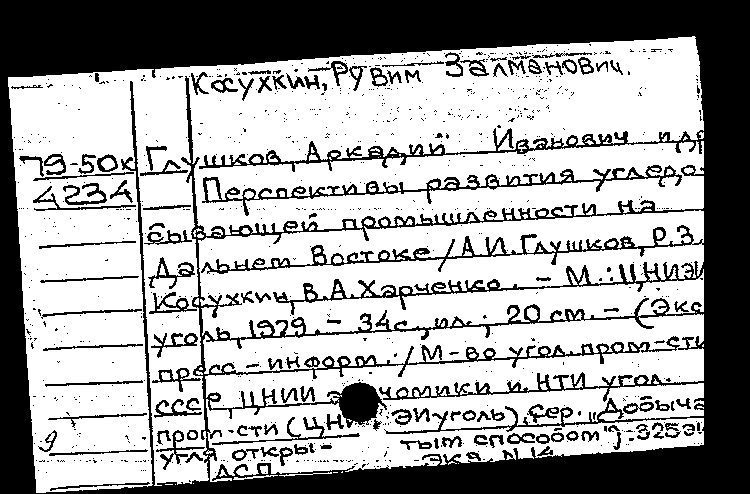 Косухкин, Рувим Залманович.
79-50к Глушков, Аркадий Иванович и др
4234 Перспективы развития угледо-
бывающей промышленности на
Дальнем Востоке / А.И. Глушков, Р.З.
Косухкин, В.А. Харченко. - М. : ЦНИЭИ
уголь, 1979. - 34с., ил. ; 20 см. - (Экс
пресс-информ. / М-во угол. пром-сти
СССР, ЦНИИ э номики и НТИ угол.
пром-сти (ЦНИ ЭИуголь). Сер. "Добыча
угля откры- тым способом"). 325 э
9 ДСП. экз. N 14